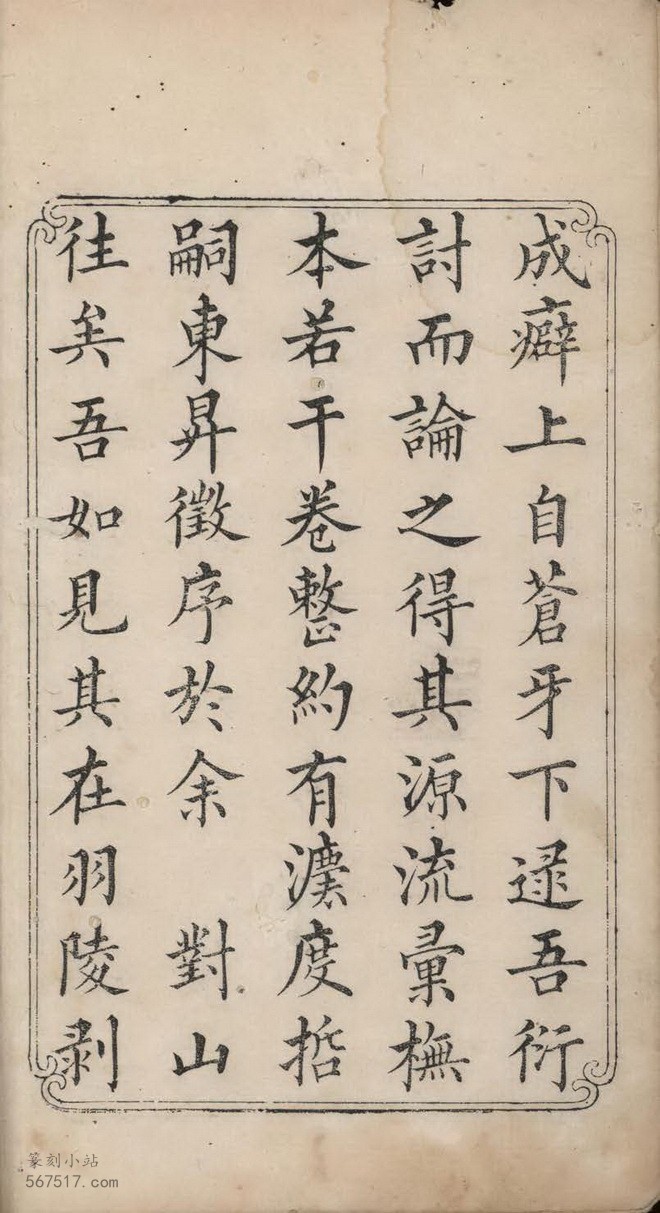 成癖上自蒼牙下逯吾衍
討而論之得其源流彙橅
本若干卷整約有灋度哲
嗣東昇徵序於余 對山
往矣吾如見其在羽陵剥
篆刻小站
567517.com